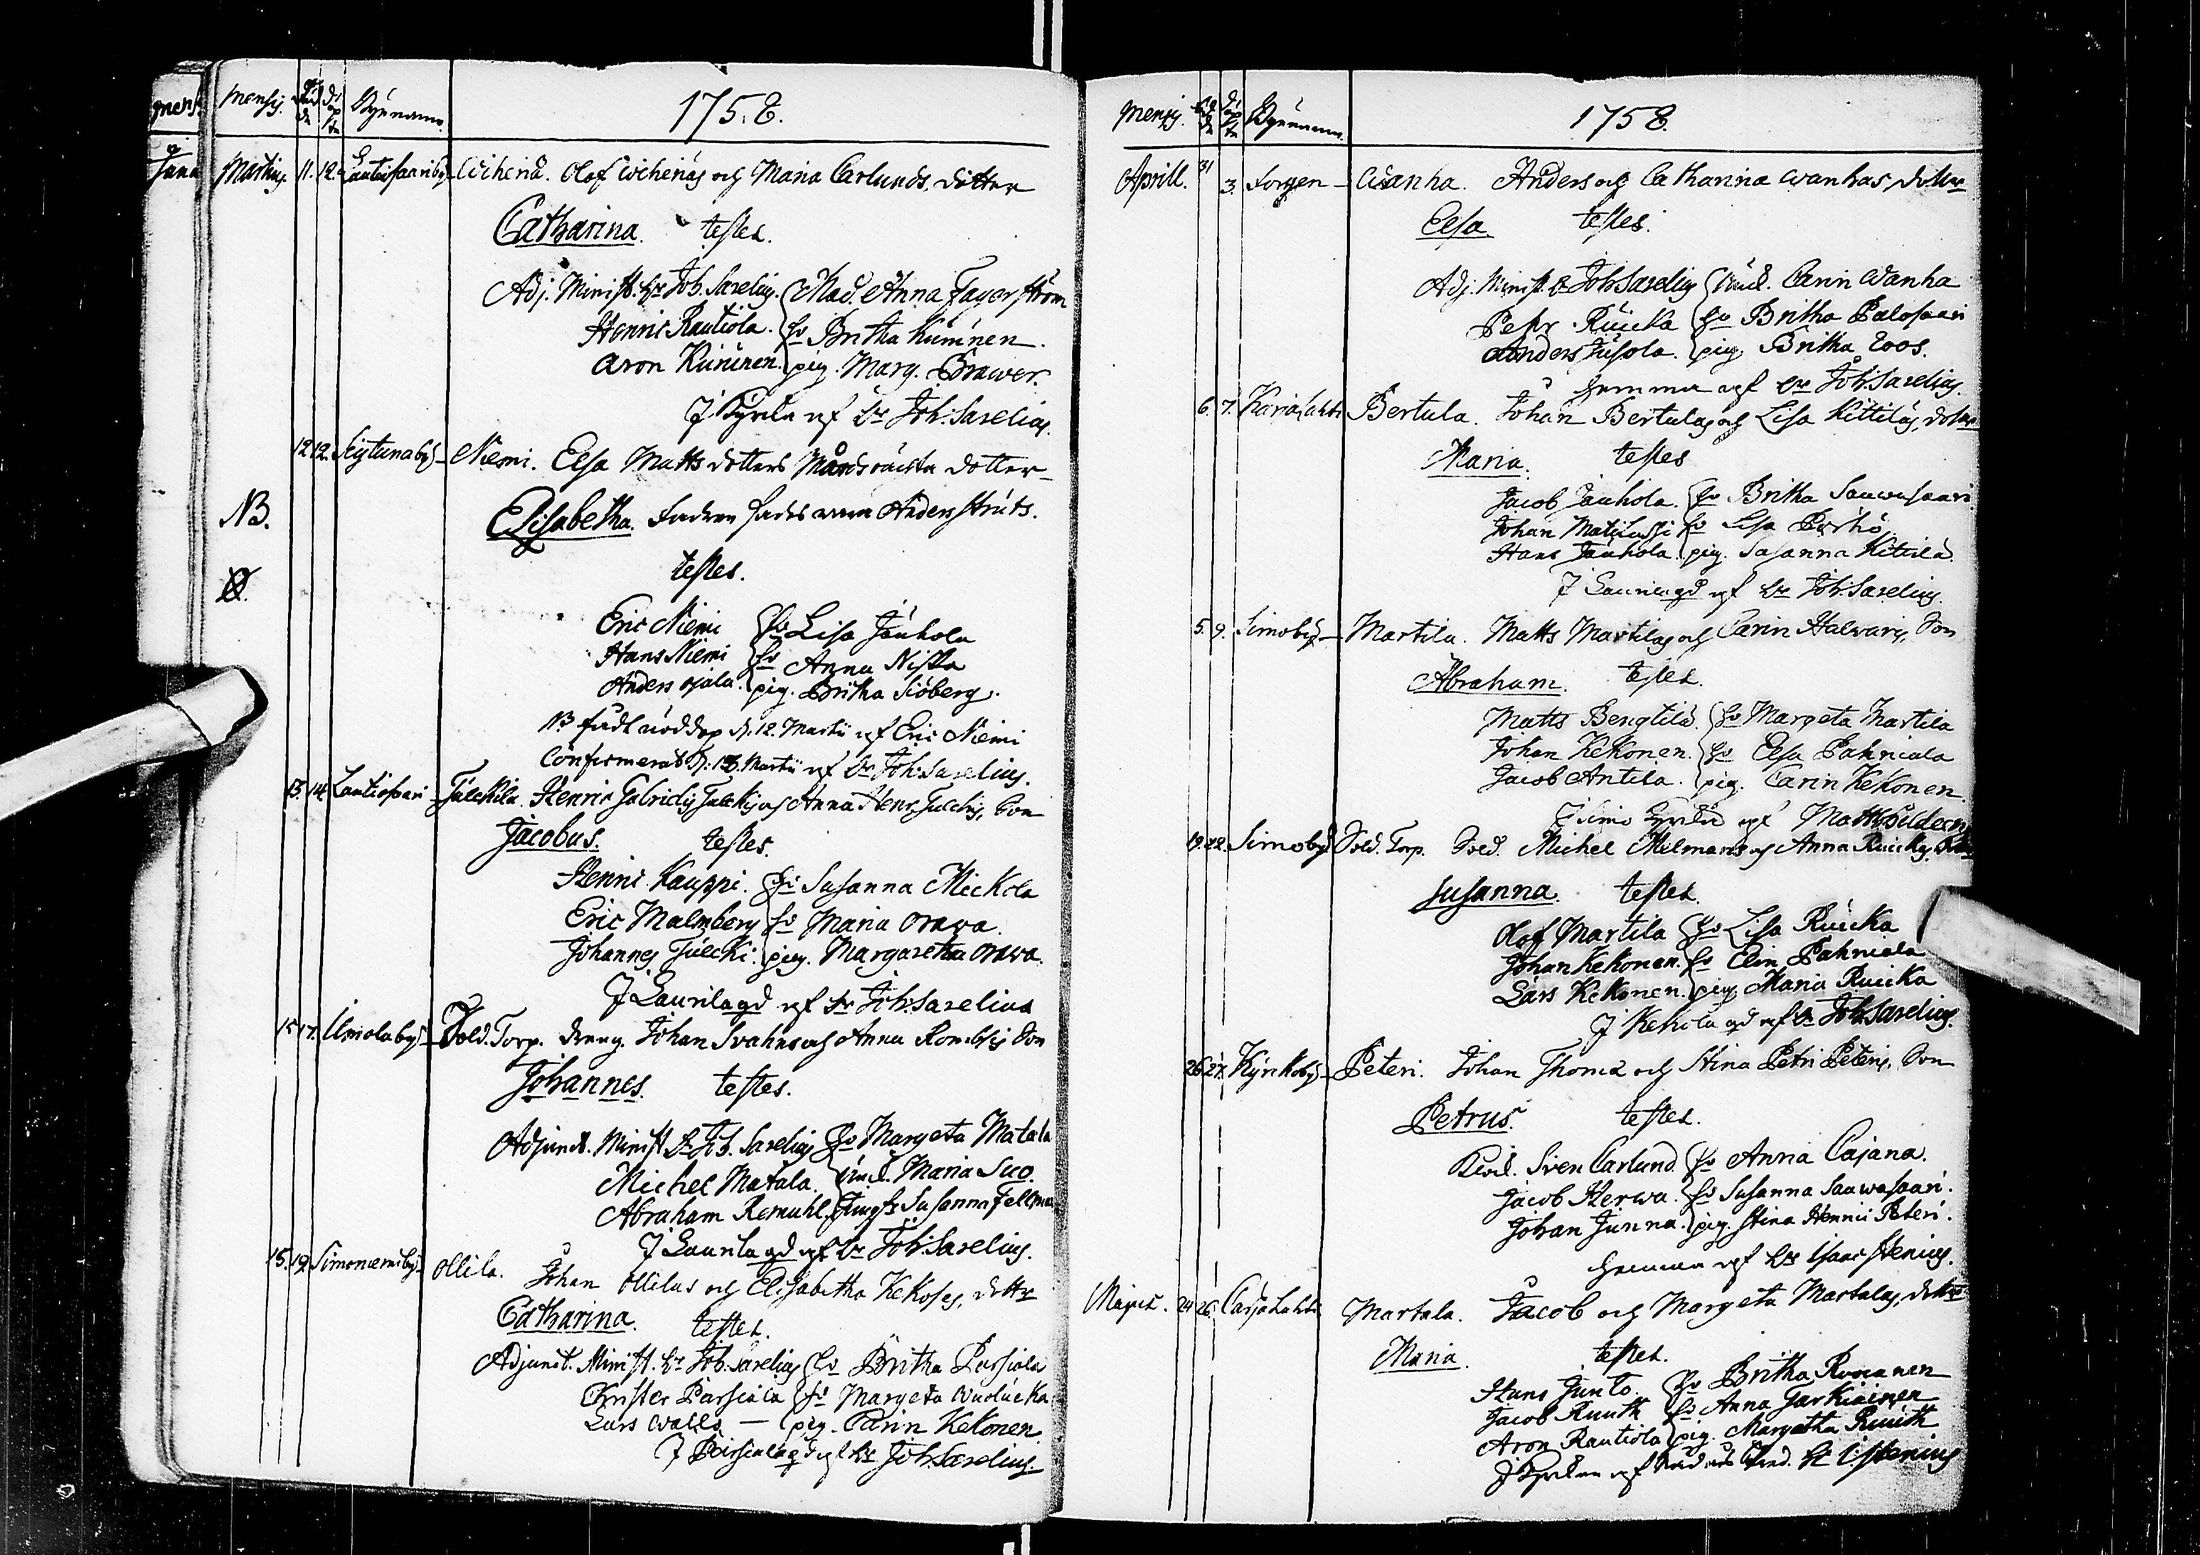 Mensis. Födde Döpte Bÿenamn. 1758.
Martius. 11. 12. Lautiosaariby Wiheriä. Olof Wiheriäs och Maria Carlunds dotter
Catharina. testes.
Adj. Minist. Hr Joh. Sarelius. Mad. Anna Fagerström
Henric Rautiola. hu Britha Kuninen.
Aron Kuninen. pig. Marg. Brawer.
J Kyrkan af Hr Joh. Sarelius.
12 12. Niemi. Elsa Matts dotters dotter
NB. Elisabetha. Fadren sades wara Anders
testes.
Eric Niemi hu Lisa Jauhola
Hans Niemi hu Anna Niska
Anders Ojala. pig. Britha Siöberg.
NB fådt nöddop d. 12. Martii af Eric Niemi
Confirmerat d. 13. Martii af Hr Joh. Sarelius.
13. 14. Lautiosaari Henric och Anna Son
Jacobus. testes.
Henric Kauppi. hu Susanna Mickola
Eric Malmberg hu Maria Orawa.
Johannes pig. Margaretha Orawa.
J Laurila gd af Hr Joh. Sarelius
15 17. Sold. Torp. dreng. Johan Svahns och Anna Son
Johannes. testes.
Adjunct. Minist. Hr Joh. Sarelius hu Margeta Matala
Michel Matala. Maria Suo.
Abraham Remahl. Susanna Fellman
J Laurila gd af Hr Joh. Sarelius.
15. 19. Simoniemiby Ollila. Johan Ollilas och Elisabetha Kekoses, dotter
Catharina. testes.
Adjunct. Minist. Hr Joh. Sarelius hu Britha Parsiala
Krister Parsiala hu Margeta
Lars Walla — pig. Carin Kekonen
J gd af Hr Joh. Sarelius.
Mensis. Födde Döpte Bÿenamn. 1758.
Aprill. 31 3. Wanha. Anders och Catharina Wanhas, dotter
Elsa. testes.
Adj. Minist. Hr Joh. Sarelius Carin Wanha
Petr. Ruicka hu Britha Palosaari
Anders pig. Britha Roos.
hemma af Hr Joh. Sarelius.
6. 7. Karialahti Bertula. Johan Bertulas och Lisa Kittiläs, dotter
Maria. testes
Jacob Jauhola. hu Britha Sauwosaari
Johan hu Lisa
Hans Jauhola. pig. Susanna Kittilä.
J Laurila gd af Hr Joh. Sarelius.
5. 9. Simoby Martila. Matts Martilas och Carin Halwaris, Son
Abraham. testes.
Matts Bengtilä. hu Margeta Martila
Johan Kekonen. hu Elsa Pahniala
Jacob Antila. pig. Carin Kekonen.
J Simo af Matts
19. 22. Simoby Sold. Torp. Sold. Michel och Anna Ruickas,
Susanna. testes.
Olof Martila hu Lisa Ruicka
Johan Kekonen. hu Elin Pahniala
Lars Kekonen. pig. Maria Ruicka
J gd af Hr Joh. Sarelius.
26. 27. Kyrkoby Peteri. Johan Thomæ och Stina Petri Peteris, Son
Petrus. testes.
Sven Carlund hu Anna Cajana.
Jacob Herwa. hu Susanna Sauwosaari.
Johan Junna. pig. Stina Henrici Peteri.
hemma af Hr Isaac Stenius.
Majus. 24 26. Carjalahti Martala. Jacob och Margeta Martalas, dotter
Maria. testes.
Hans Junto. hu Britha
Jacob Ruuth hu Anna
Aron Rautiola pig. Margetha Ruuth
J Kyrkan af Hr I. Stenius